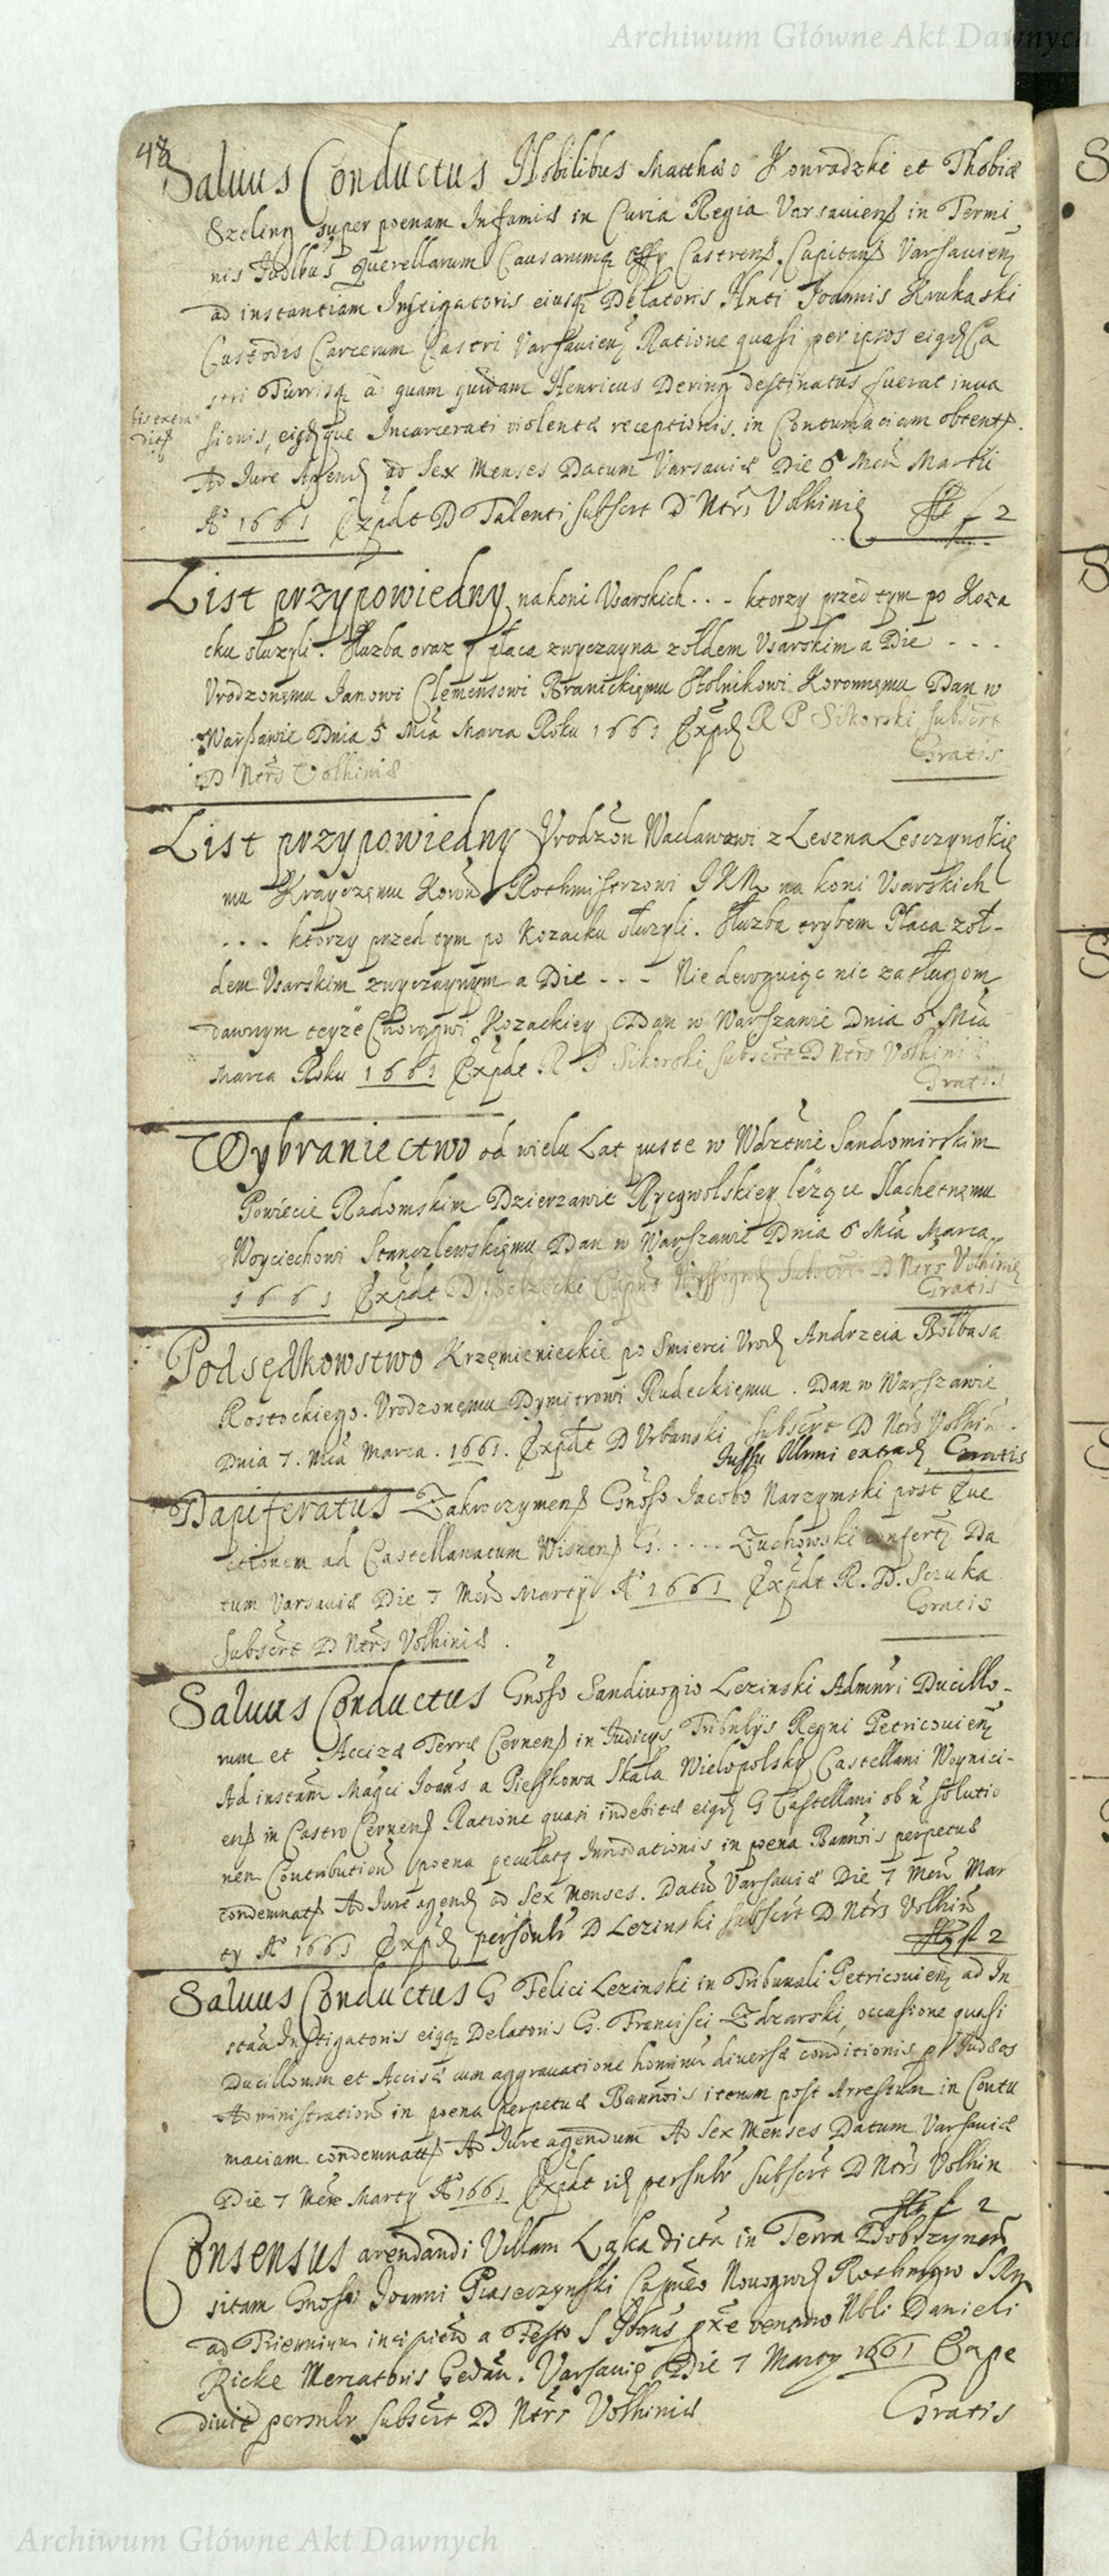 Archiwum Główne Akt Dawnych
48
Saluus Conductus Nobilibus Matthæo Konradzki et Thobiæ
Szeling super poenam Infamiæ in Curia Regia Varsauien in Termi
nis Querellarum Causarumq Castren Capitan Varsauien
ad instantiam Instigatoris eiusq Delatoris Joannis Krukoski
Custodis Carcerum Castri Varsauien Ratione quasi per ipsos Ca
stri Turrisq à quam quidam Henricus Dering destinatus fuerat inua
sionis, Incarcerati violentæ receptionis, in Contumaciam obtent
Ad Jure Agend ad Sex Menses Datum Varsauiæ Die 5 Men Martii
Aº 1661 Expdt D Talenti subscrt D Ntrs Volhiniæ f 2
List przypowiedny na koni Vsarskich . . - ktorzy przed tym po Koza
cku słuzyli. Słuzba oraz y płaca zwyczayna zołdem Vsarskim a Die - - -
Vrodzonęmu Janowi Clemensowi Branickięmu Stolnikowi Koronnęmu Dan w
Warszawie Dnia 5 Mca Marca Roku 1661 Expd R P Sikorski subscrt
D Ntrs Volhiniæ Gratis
List przypowiedny Vrodzon Wacławowi z Leszna Lesczynskię
mu Krayczęmu Koron Rothmistrzowi JKM na koni Vsarskich
. . . ktorzy przed tym po Kozacku słuzyli. Słuzba trybem Płaca zoł-
dem Vsarskim zwyczaynym a Die - - - Nie deroguiąc nic zasługom
dawnym teyze Chorągwi Kozackiey Dan w Warszawie Dnia 5 Mca
Marca Roku 1661 Expdt R P Sikorski subscrt D Ntrs Volhiniæ
Gratis
Wybraniectwo od wielu Lat puste w Wdztwie Sandomirskim
Powiecie Radomskim Dzierzawie Ryczywolskiey lezące Slachetnęmu
Woyciechowi Stanczlewskięmu Dan w Warszawie Dnia 5 Mca Marca
1661 Expdt D Subscrt D Ntrs Volhiniæ
Gratis
Podsędkowstwo Krzęmienieckie po Smierci Vrod Andrzeia Bołbasa
Rostockiego. Vrodzonęmu Dymitrowi Rudeckięmu. Dan w Warszawie
Dnia 7. Mca Marca. 1661. Expdt D Vrbanski subscrt D Ntrs Volhin.
Jussu Illmi extrad Gratis
Dapiferatus Zakroczymen Gnoso Jacobo Narzymski post Eue
ctionem ad Castellanatum Wisnen G. . . . . . Zuchowski confert Da
tum Varsauiæ Die 7 Men Martÿ Aº 1661 Expdt R. D. Sczuka
Gratis
Subscrt D Ntrs Volhiniæ.
Saluus Conductus Gnoso Sandiuogio Lezinski Admnri Ducillo-
rum et Accizæ Terræ Cernen in Judicys Tribnlÿs Regni Petricouien
Ad instam Magci Joans a Pieskowa Skała Wielopolsky Castellani Woynici-
en in Castro Cernen Ratione quasi indebitæ G Castellani ob n solutio
nem Contribution poena Innodationis in poena Bannois perpetuæ
condemnat Ad Jure agend ad Sex Menses. Datu Varsauiæ Die 7 Men Mar
ty Aº 1661 Expd personlr D Lezinski subscrt D Ntrs Volhin
f 2
Saluus Conductus G Felici Lezinski in Tribunali Petricouien ad In
stan Instigatoris Delatoris G. Francisci Zdzarski, occasione quasi
Ducillorum et Accisæ cum aggrauatione hominu diuersæ conditionis p Judæos
Administration in poena perpetuæ Bannois iterum post Arrestum in Contu
maciam condemnat Ad Jure agendum Ad Sex Menses Datum Varsauiæ
Die 7 Men Marty Aº 1661 Expdt personlr subscrt D Ntrs Volhin
f 2
Consensus arendandi Villam Łąka dicta in Terra Dobrzynen
sitam Gnoso Joanni Piaseczynski Capneo Nouogrod Rothmgro SRM
ad Triennium incipien a Festo S Joans venturo Nbli Danieli
Ricke Mercatoris Gedan. Varsauiæ Die 7 Marty 1661 Expe
diuit personlr subscrt D Ntrs Volhiniæ Gratis
Archiwum Główne Akt Dawnych